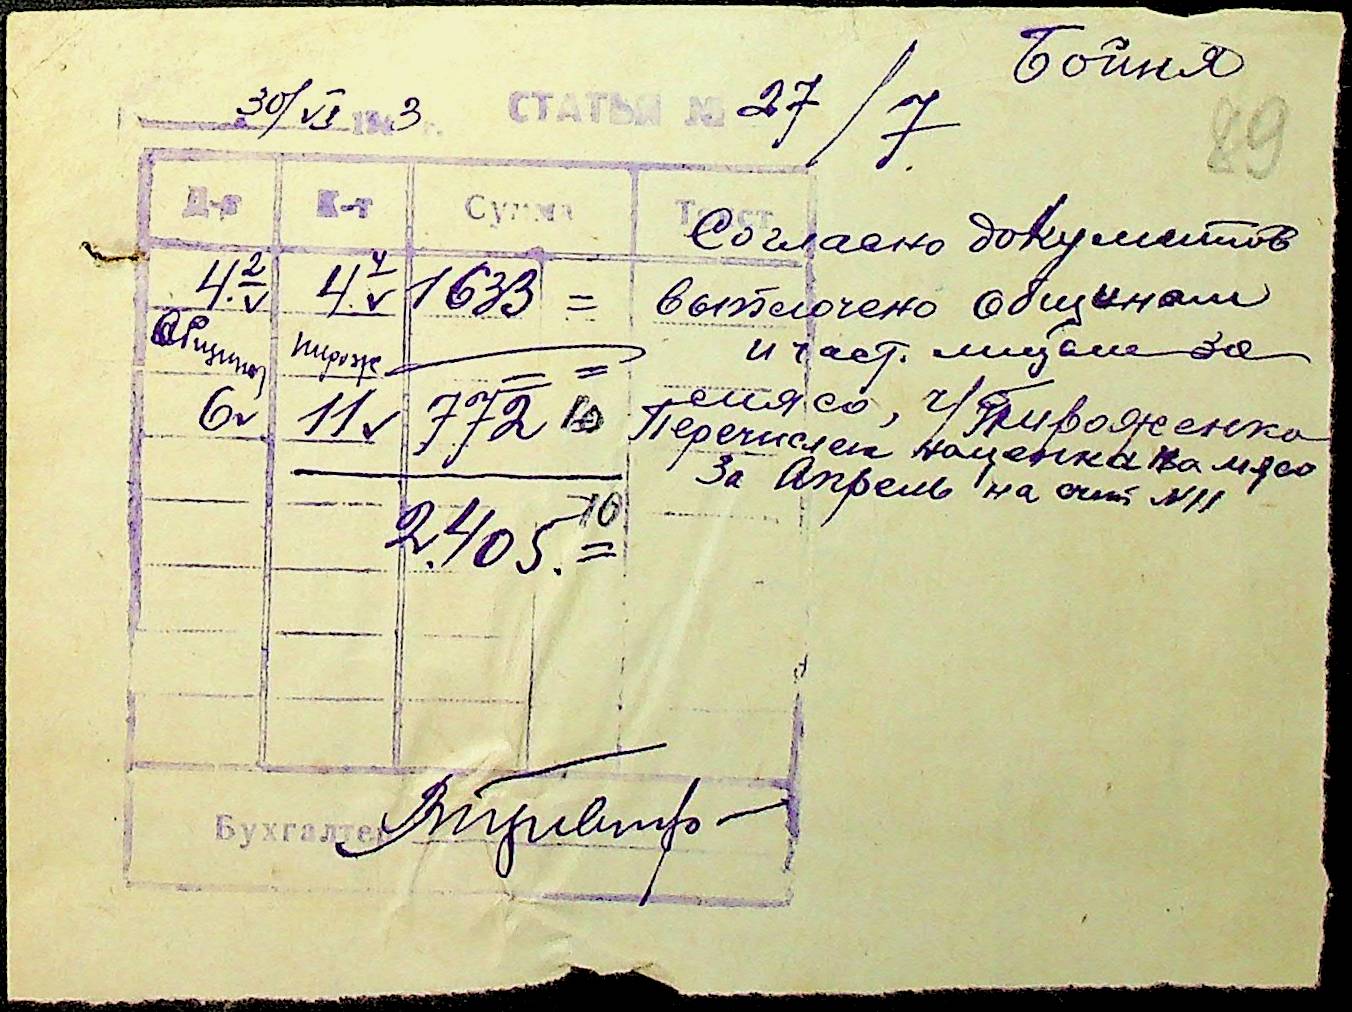 Бойня
30/VI 1943 г. СТАТЬЯ № 27/7
89
Д-т К-т Сумма Текст
4.2 4.4 1633 = Согласно документов
выплочено общинам
Общины
и част. лицам за
мясо, ч/Пивоженко
6 11 772 10 Перечислен наценка на мясо
за Апрель на счет №11
2.405.10
Бухгалтер